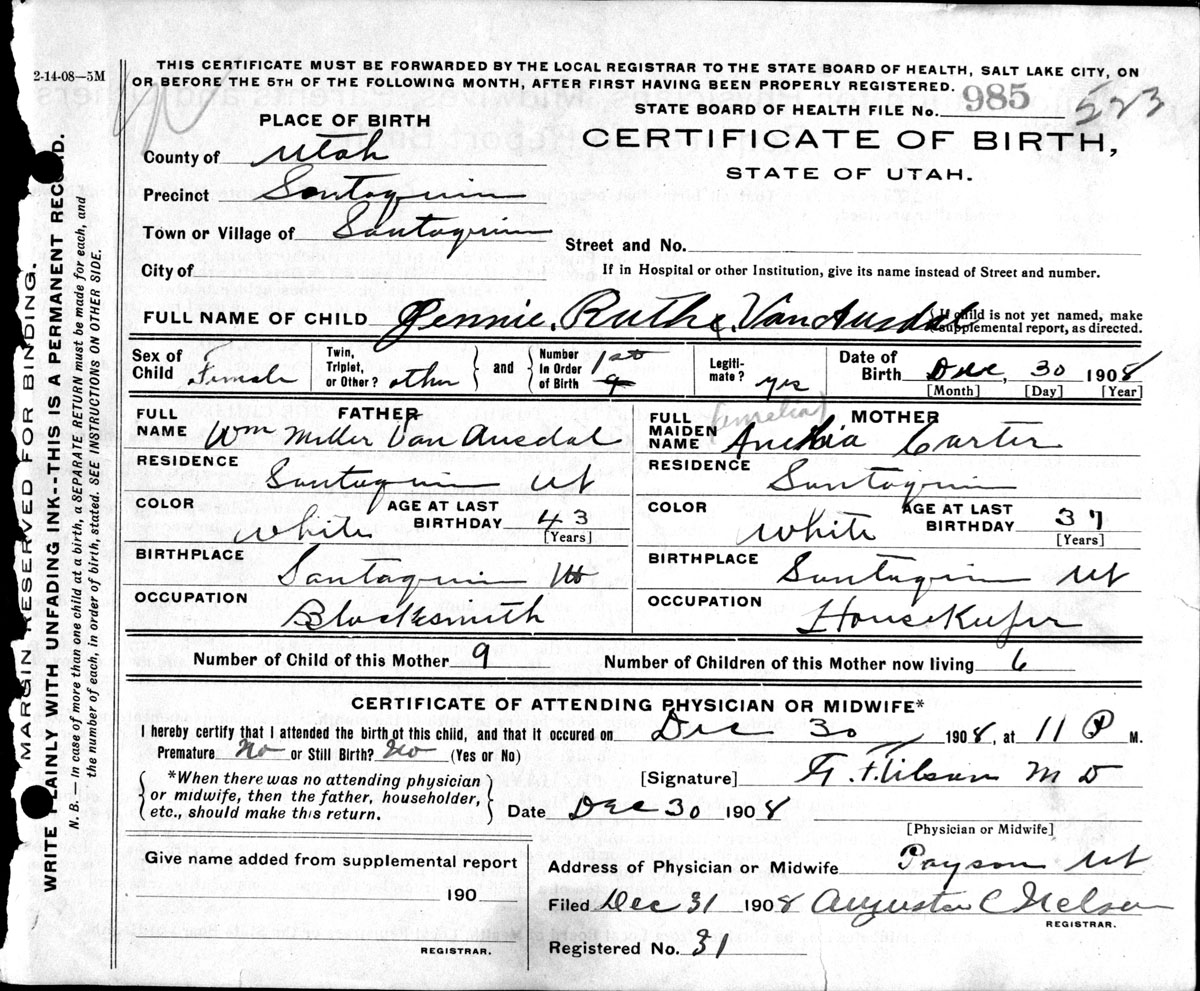 2-14-08—5M
THIS CERTIFICATE MUST BE FORWARDED BY THE LOCAL REGISTRAR TO THE STATE BOARD OF HEALTH, SALT LAKE CITY, ON
OR BEFORE THE 5TH OF THE FOLLOWING MONTH, AFTER FIRST HAVING BEEN PROPERLY REGISTERED.
STATE BOARD OF HEALTH FILE No. 985 523
PLACE OF BIRTH
CERTIFICATE OF BIRTH,
STATE OF UTAH.
County of Utah
Precinct Santaquin
Town or Village of Santaquin
Street and No.
City of
If in Hospital or other Institution, give its name instead of Street and number.
FULL NAME OF CHILD Jennie Ruth Van Ausdal
If child is not yet named, make
supplemental report, as directed.
Sex of Child Female
Twin, Triplet, or Other? other
and
Number in Order of Birth 1st 9
Legiti-mate? yes
Date of Birth Dec, 30 1908
[Month] [Day] [Year]
FATHER
FULL NAME Wm Miller Van Ausdal
RESIDENCE Santaquin Ut
COLOR White
AGE AT LAST BIRTHDAY 43
[Years]
BIRTHPLACE Santaquin Ut
OCCUPATION Blacksmith
MOTHER
FULL MAIDEN NAME (emelia) Carter
RESIDENCE Santaquin
COLOR White
AGE AT LAST BIRTHDAY 37
[Years]
BIRTHPLACE Santaquin Ut
OCCUPATION HouseKeeper
Number of Child of this Mother 9 Number of Children of this Mother now living 6
CERTIFICATE OF ATTENDING PHYSICIAN OR MIDWIFE*
I hereby certify that I attended the birth of this child, and that it occured on Dec 30 1908, at 11 P M.
Premature No or Still Birth? No (Yes or No)
*When there was no attending physician
or midwife, then the father, householder,
etc., should make this return.
[Signature] Tilson M D
Date Dec 30 1908
[Physician or Midwife]
Give name added from supplemental report
190
REGISTRAR.
Address of Physician or Midwife Payson Ut
Filed Dec 31 1908 Augustus C Nelson
REGISTRAR.
Registered No. 31
MARGIN RESERVED FOR BINDING.
WRITE PLAINLY WITH UNFADING INK--THIS IS A PERMANENT RECORD.
N. B. — In case of more than one child at a birth, a SEPARATE RETURN must be made for each, and
the number of each, in order of birth, stated. SEE INSTRUCTIONS ON OTHER SIDE.